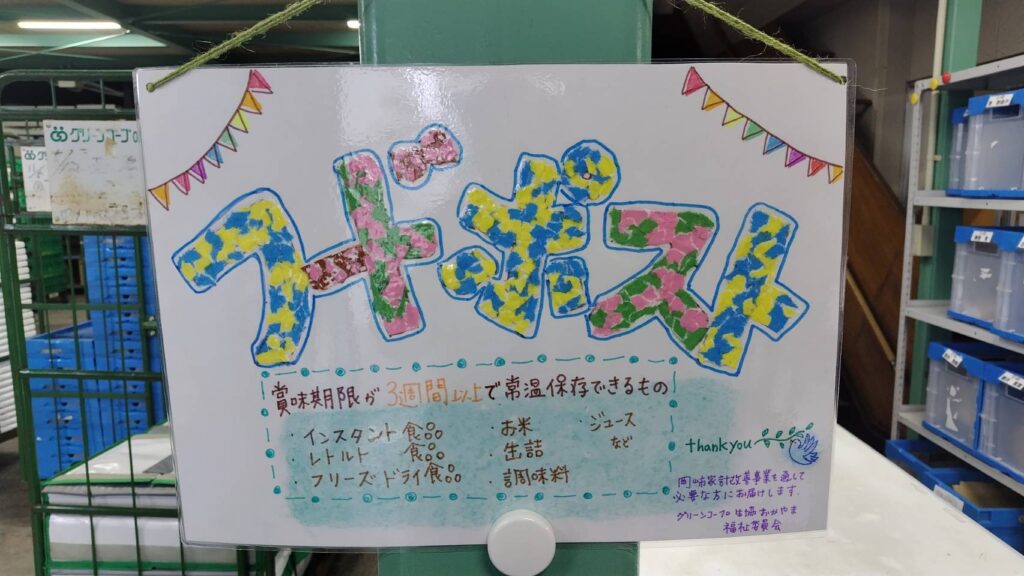 グリーンコープの
フードポスト
賞味期限が3週間以上で常温保存できるもの
・インスタント食品
・レトルト 食品
・フリーズドライ食品
・お米
・缶詰
・調味料
・ジュース
など
thank you
岡山の家計改善事業を通して
必要な方にお届けします。
グリーンコープ生協おかやま
福祉委員会